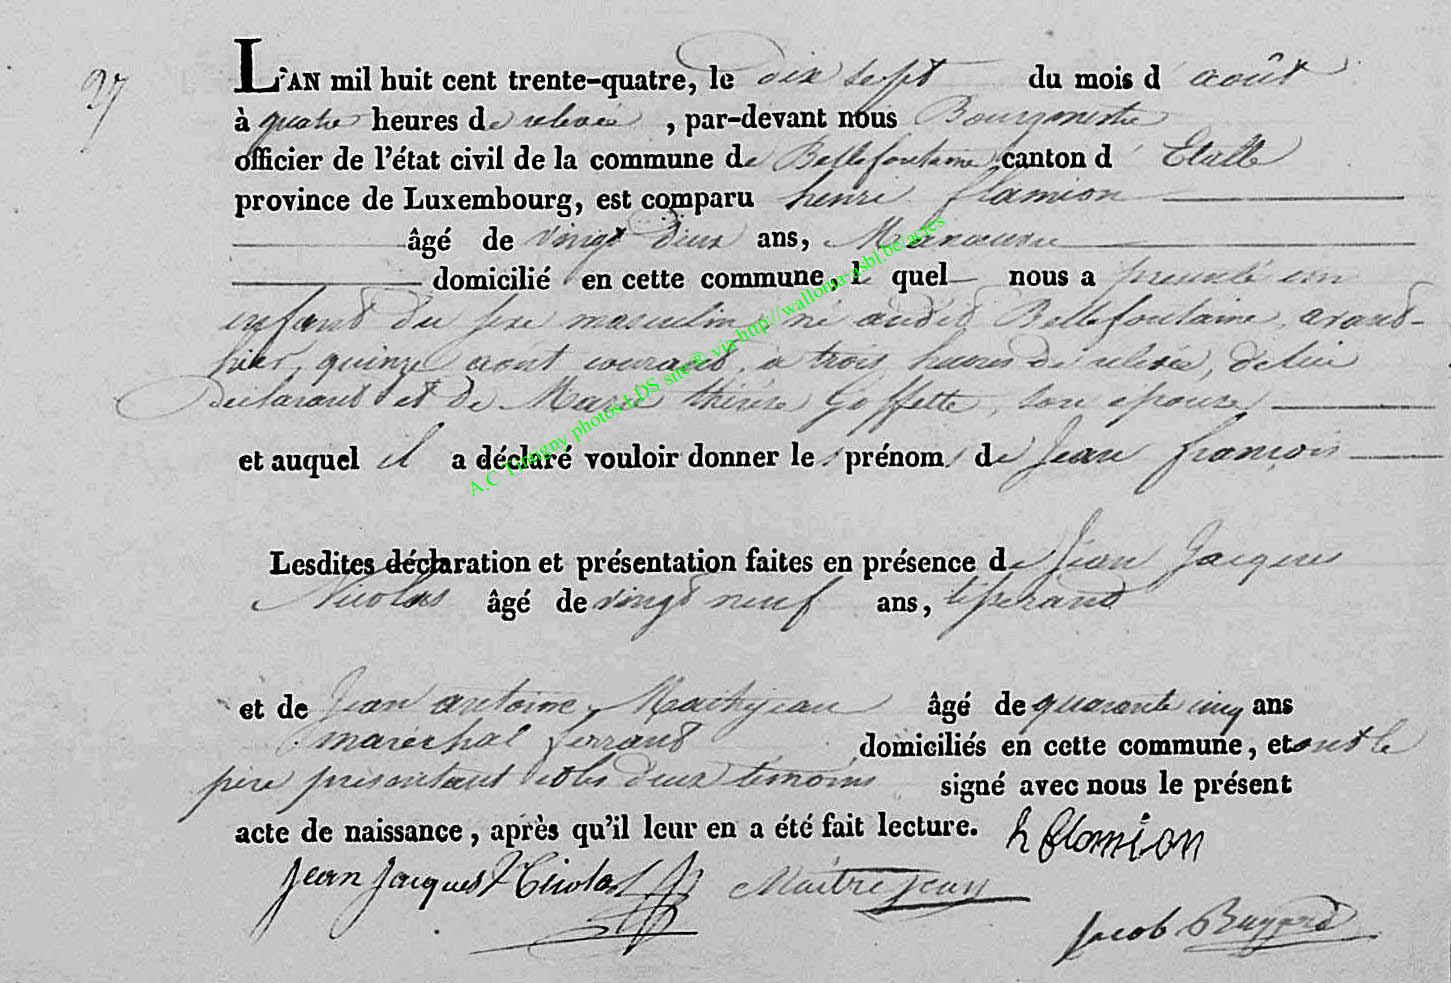 27
L'AN mil huit cent trente-quatre, le dix sept du mois d' août
à quatre heures de relevée, par-devant nous Bourgmestre
officier de l'état civil de la commune de Bellefontaine canton d' Etalle
province de Luxembourg, est comparu henri flamion
âgé de vingt deux ans, Manoeuvre
domicilié en cette commune, lequel nous a presenté un
enfant du sexe masculin, né audit Bellefontaine, avant-
hier, quinze août courant, à trois heures de relevée, de lui
déclarant et de Marie thérèse Goffette, son épouse
et auquel il a déclaré vouloir donner les prénoms de Jean françois
Lesdites déclaration et présentation faites en présence de Jean Jacques
Nicolas âgé de vingt neuf ans, tisserand
et de Jean antoine Maitrejean âgé de quarante cinq ans
maréchal ferrant domiciliés en cette commune, et ont le
père présentant et les deux témoins signé avec nous le présent
acte de naissance, après qu'il leur en a été fait lecture. h flamion
Jean Jacques Nicolas Maitrejean
Jacob
A.C Tintigny photos LDS site® via http://wallonia-asbl.be/actes